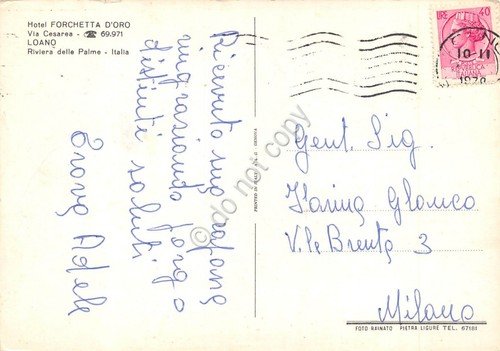 Hotel FORCHETTA D'ORO
Via Cesarea - ☎ 69.971
LOANO
Riviera delle Palme - Italia
Ricevuto sua
ringraziando porgo
distinti saluti
Adele
PRINTED IN ITALY
GENOVA
do not copy
LIRE 40
10-11
Gent. Sig.
Glauco
V.le Brenta 3
Milano
FOTO RAINATO PIETRA LIGURE TEL. 67181